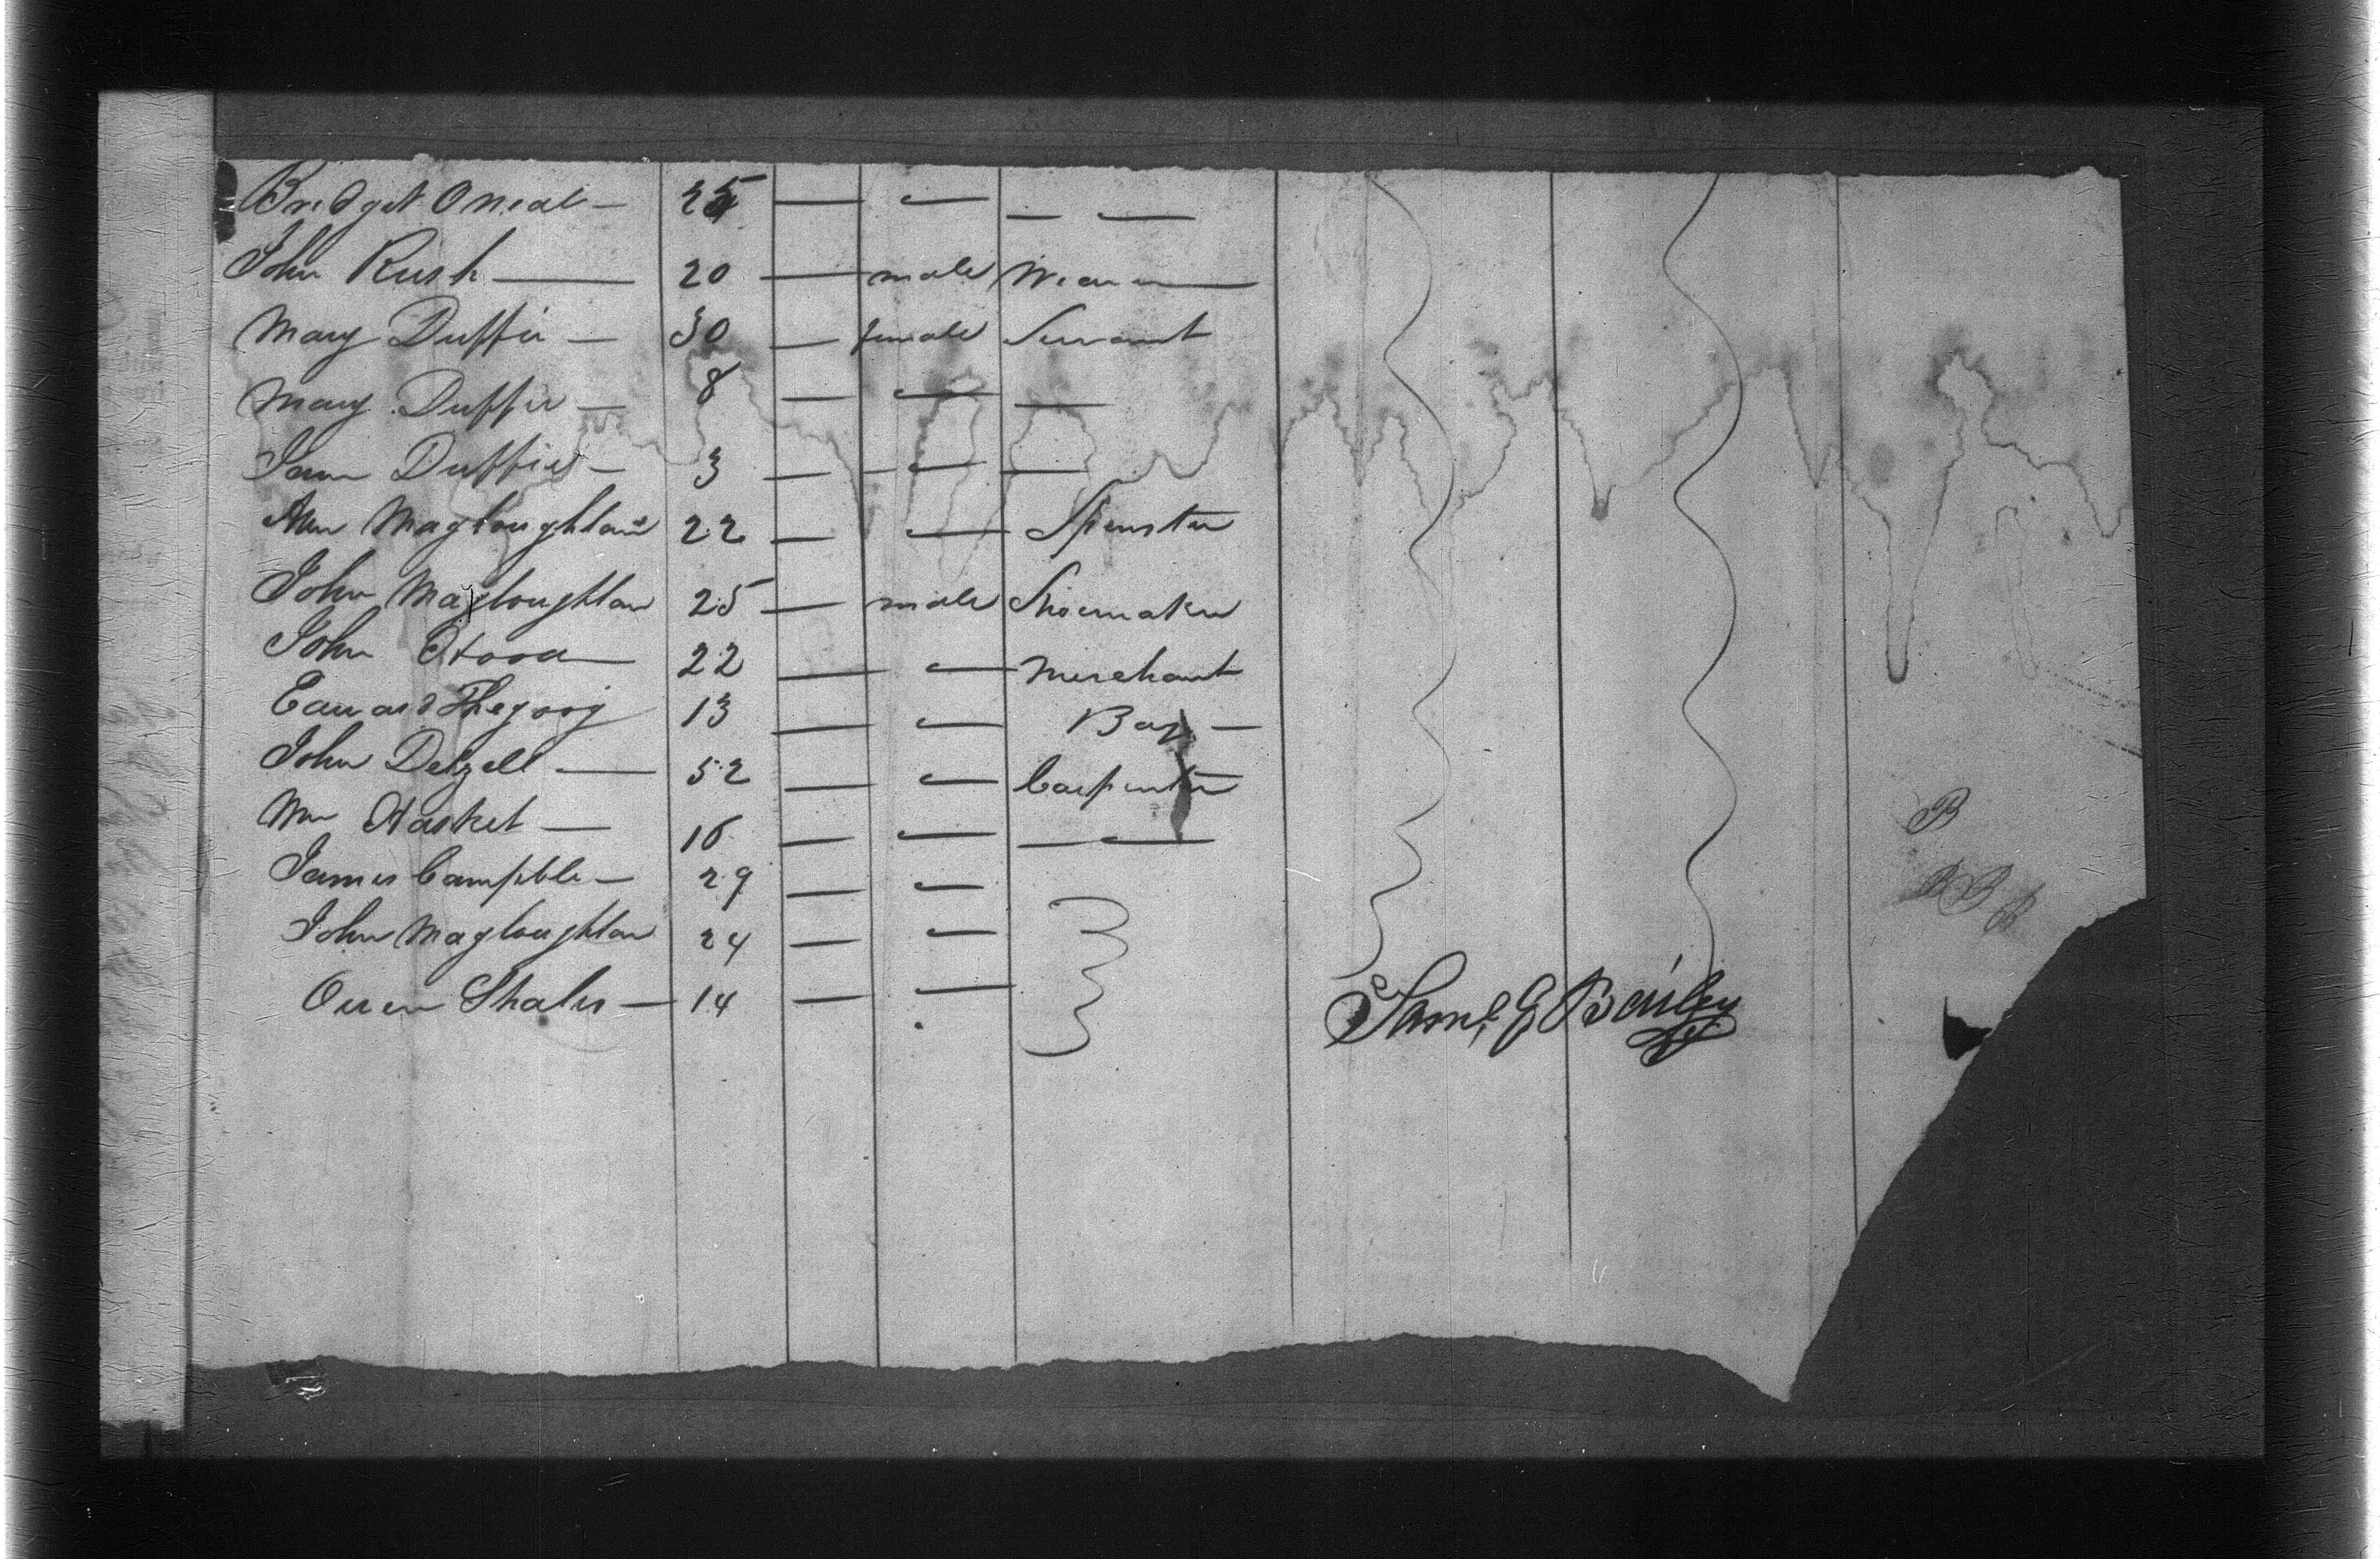 Bridget Oneal — 25 — — — —
John Rush — 20 — male Weaver
Mary Duffie — 30 — female Servant
Mary Duffie — 8 — — —
Jann Duffie — 3 — — —
Ann Magloughlan 22 — — Spinster
John Magloughlan 25 — male Shoemaker
John Hood 22 — — Merchant
Edward 13 — — Boy —
John Delzell — 52 — — Carpenter
Wm Hasket — 16 — — — —
James Campble — 29 — —
John Magloughlan 24 — —
Owen Shales — 14 — —
Saml G Bailey
B
B B B